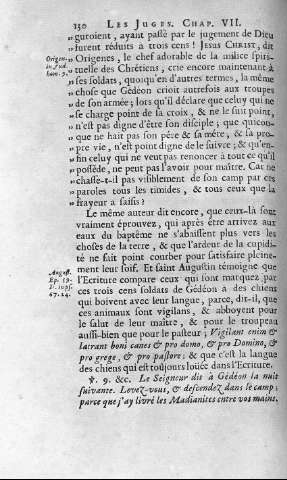 130 LES JUGES. CHAP. VII.
„ guroient, ayant passé par le jugement de Dieu
„ furent réduits à trois cens ! JESUS CHRIST, dit
„ Origenes, le chef adorable de la milice spiri-
„ tuelle des Chrétiens, crie encore maintenant à
„ ses soldats, quoiqu'en d'autres termes, la même
„ chose que Gédéon crioit autrefois aux troupes
„ de son armée; lors qu'il déclare que celuy qui ne
„ se charge point de sa croix, & ne le suit point,
„ n'est pas digne d'être son disciple ; que quicon-
„ que ne hait pas son pére & sa mére, & sa pro-
„ pre vie, n'est point digne de le suivre; & qu'en-
„ fin celuy qui ne veut pas renoncer à tout ce qu'il
„ posséde, ne peut pas l'avoir pour maître. Car ne
„ chasse-t-il pas visiblement de son camp par ces
„ paroles tous les timides, & tous ceux que la
„ frayeur a saisis ?
Origen.
in Jud.
hom. 9.
Le même auteur dit encore, que ceux-là sont
vraiment éprouvez, qui après être arrivez aux
eaux du baptême ne s'abaissent plus vers les
choses de la terre, & que l'ardeur de la cupidi-
té ne fait point courber pour satisfaire pleine-
ment leur soif. Et saint Augustin témoigne que
l'Ecriture compare ceux qui sont marquez par
ces trois cens soldats de Gédéon à des chiens
qui boivent avec leur langue, parce, dit-il, que
ces animaux sont vigilans, & aboyent pour
le salut de leur maître, & pour le troupeau
aussi-bien que pour le pasteur ; Vigilant enim &
latrant boni canes & pro domo, & pro Domino, &
pro grege, & pro pastore; & que c'est la langue
des chiens qui est toujours loüée dans l'Ecriture.
August.
47. 24.
℣. 9. &c. Le Seigneur dit à Gédéon la nuit
suivante. Levez-vous, & descendez dans le camp;
parce que j'ay livré les Madianites entre vos mains.